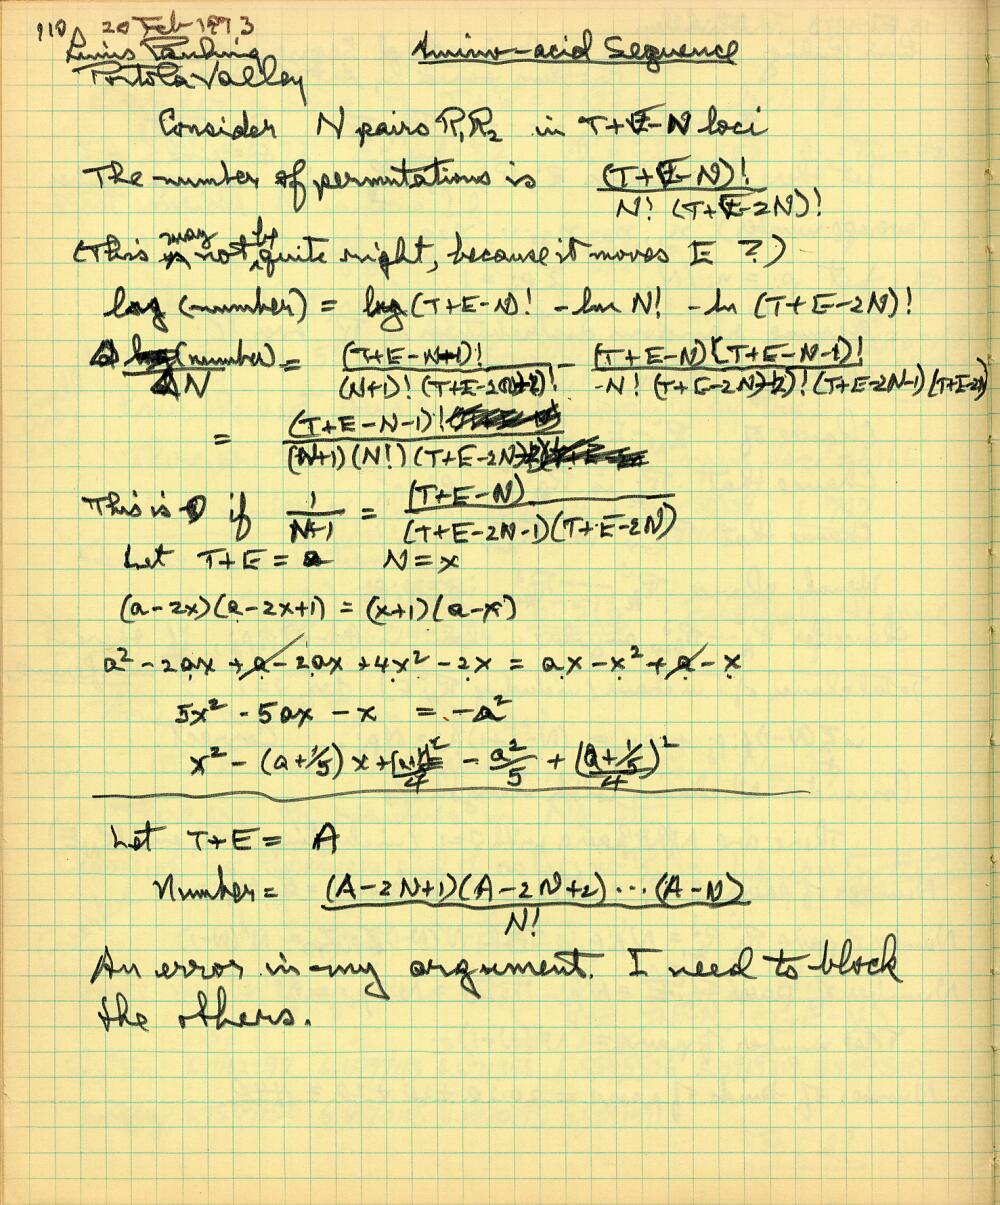 110 20 Feb 1973
Linus Pauling
Portola Valley
Amino-acid Sequence
Consider N pairs R₁R₂ in T+E-N loci
The number of permutations is (T+E-N)! / N! (T+E-2N)!
(This may not be quite right, because it moves E ?)
log (number) = log (T+E-N)! - ln N! - ln (T+E-2N)!
Δ (number) / ΔN = (T+E-N+1)! / (N+1)! (T+E-2N+2)! - (T+E-N)(T+E-N-1)! / N! (T+E-2N+2)! (T+E-2N-1)(T+E-2N)
= (T+E-N-1)! / (N+1)(N!)(T+E-2N
This is 0 if 1/N+1 = (T+E-N) / (T+E-2N-1)(T+E-2N)
Let T+E = a N = x
(a-2x)(a-2x+1) = (x+1)(a-x)
a² - 2ax + a - 2ax + 4x² - 2x = ax - x² + a - x
5x² - 5ax - x = -a²
x² - (a+1/5)x + = - a²/5 + (a+1/5)²/4
Let T+E = A
Number = (A-2N+1)(A-2N+2)...(A-N) / N!
An error in my argument. I need to block
the others.